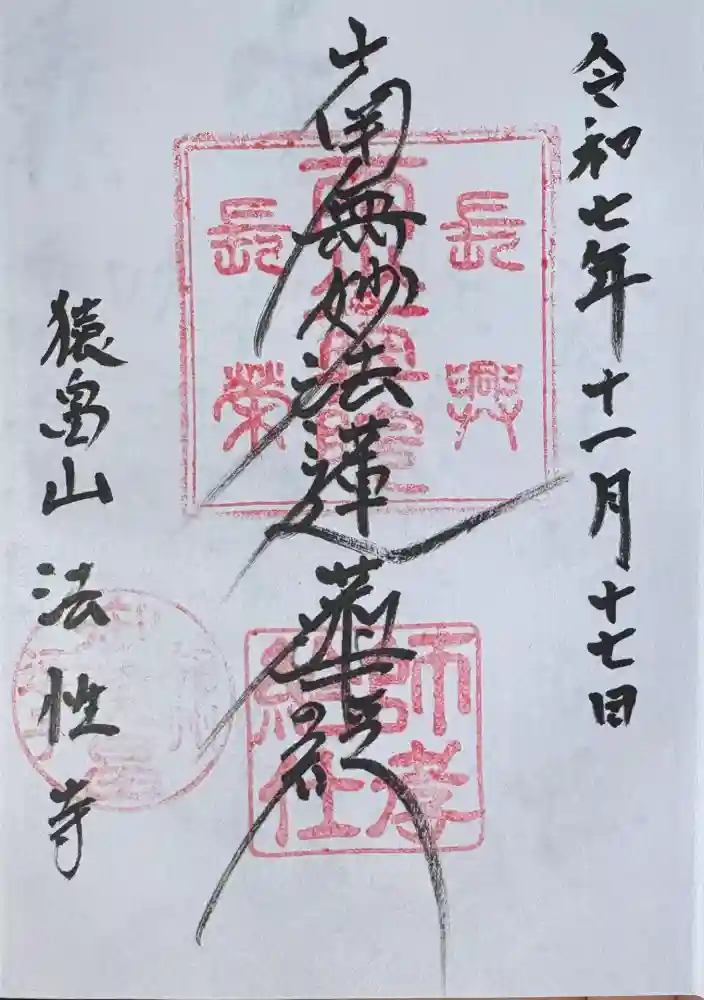 令和七年十一月十七日
南無妙法蓮華経
長興
長榮
猿畠山 法性寺